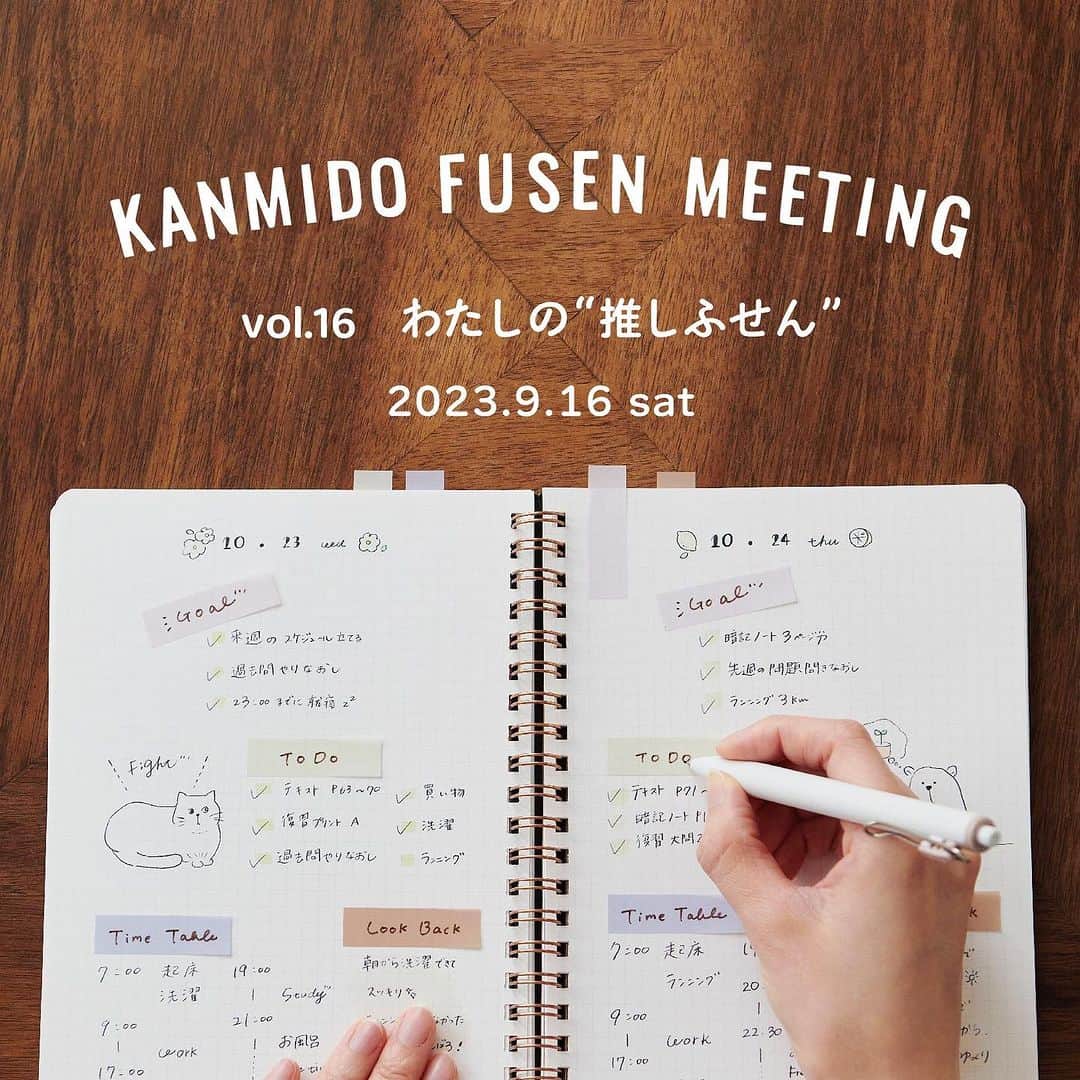 KANMIDO FUSEN MEETING
vol.16 わたしの“推しふせん”
2023.9.16 sat
10 . 23 wed
Goal
来週の スケジュール 立てる
過去問やりなおし
23:00 までに 就寝 zz
Fight
To Do
テキスト P63〜70
買い物
復習プリント A
洗濯
過去問やりなおし
ランニング
Time Table
7:00 起床
洗濯
9:00
work
17:00
19:00
Study
21:00
お風呂
Look Back
朝から洗濯できて
スッキリ
10 . 24 thu
Goal
暗記ノート 3ページ分
先週の問題解きなおし
ランニング 3km
To Do
テキスト P71〜
暗記ノート P1
復習 大問2
Time Table
7:00 起床
ランニング
9:00
work
17:00
20
22:30